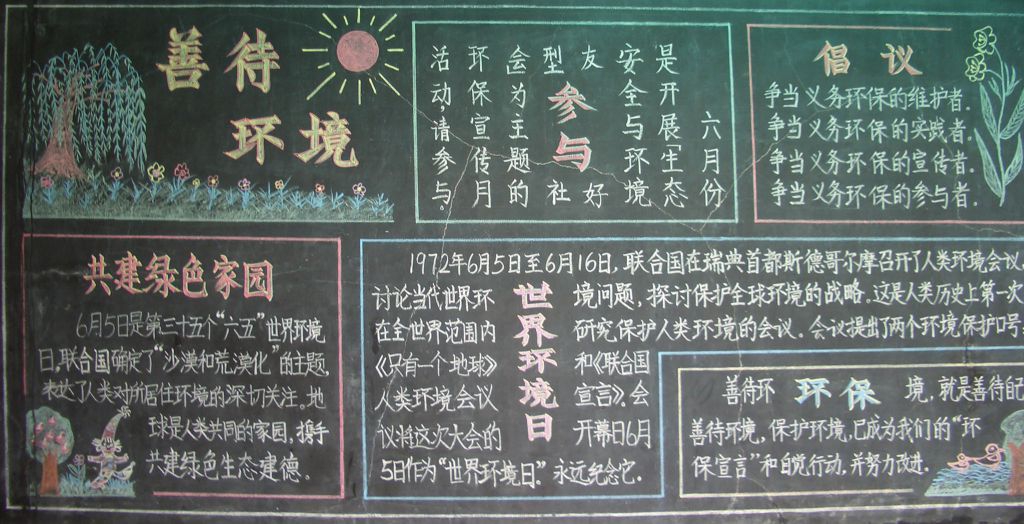 善待
环境
六月份
是开展「生态
安全与环境
友好
型社
会为主题的
环保宣传月
活动,请参与。
参与
倡议
争当义务环保的维护者.
争当义务环保的实践者.
争当义务环保的宣传者.
争当义务环保的参与者.
共建绿色家园
6月5日是第三十五个“六五”世界环境
日,联合国确定了“沙漠和荒漠化”的主题,
表达了人类对所居住环境的深切关注。地
球是人类共同的家园,携手
共建绿色生态建德。
世界环境日
1972年6月5日至6月16日,联合国在瑞典首都斯德哥尔摩召开了人类环境会议,
讨论当代世界环境问题,探讨保护全球环境的战略.这是人类历史上第一次
在全世界范围内研究保护人类环境的会议.会议提出了两个环境保护口号
《只有一个地球》和《联合国
人类环境会议宣言》.会
议将这次大会的开幕日6月
5日作为“世界环境日”.永远纪念它.
环保
善待环境,就是善待自己
善待环境,保护环境,已成为我们的“环
保宣言”和自觉行动,并努力改进.